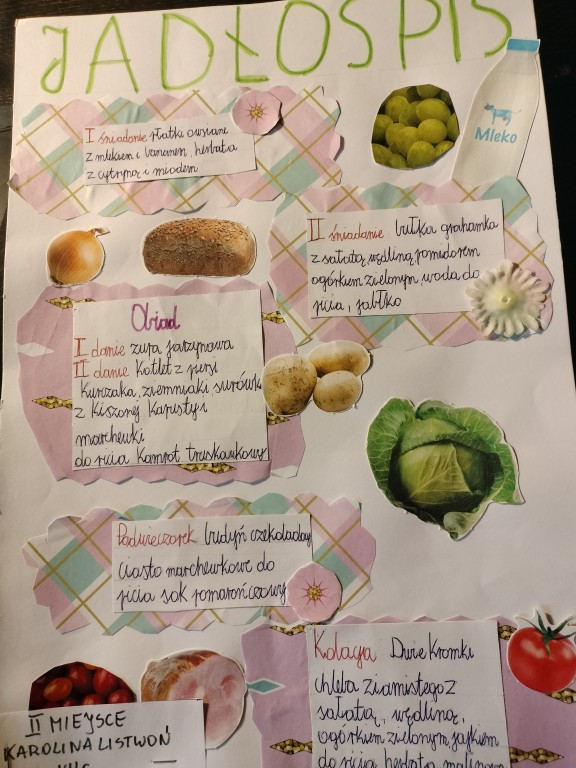 JADŁOSPIS
Mleko
I śniadanie płatki owsiane
z mlekiem i bananem, herbata
z cytryną i miodem
II śniadanie bułka grahamka
z sałatą, wędliną, pomidorem
ogórkiem zielonym, woda do
picia, jabłko
Obiad
I danie zupa jarzynowa
II danie Kotlet z piersi
Kurczaka, ziemniaki surówk
z Kiszonej Kapusty i
marchewki
do picia Kompot truskawkowy
Podwieczorek budyń czekoladowy
ciasto marchewkowe do
picia sok pomarańczowy
Kolacja Dwie Kromki
chleba ziarnistego z
sałatą, wędliną,
ogórkiem zielonym, jajkiem
do picia herbata malinowa
II MIEJSCE
KAROLINA LISTWOŃ